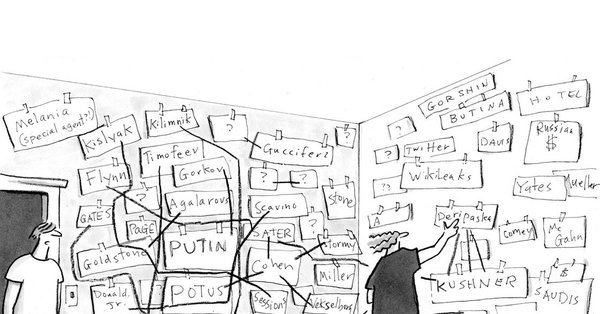 Melania
(special agent?!)
Kislyak
Kilimnik
?
Guccifer2
?
Timofeev
Gorkov
Flynn
?
?
?
Stone
GATES
PAGE
Agalarous
Scavino
SATER
Stormy
Goldstone
PUTIN
Cohen
Miller
Donald
Jr.
?
POTUS
Sessions
Vekselberg
GORSHIN
BUTINA
HOTEL
?
Twitter
DAVIS
Russian
$
??
WikiLeaks
Yates
Mueller
A
Deripaska
Comey
Mc
Gahn
KUSHNER
$
SAUDIS